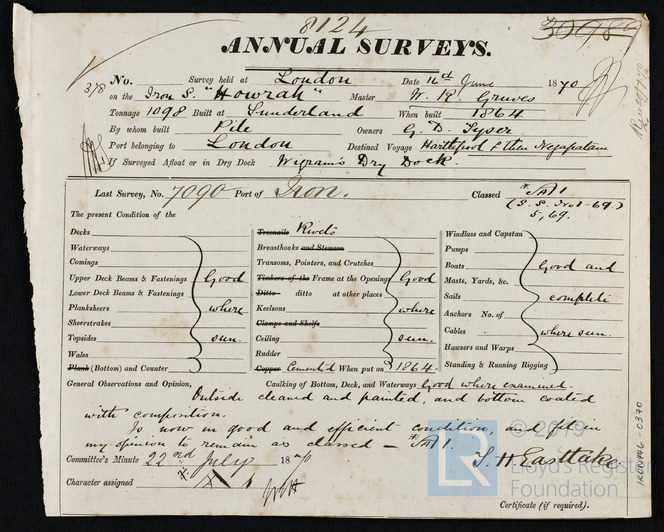 8124
30989
ANNUAL SURVEYS.
378 No. Survey held at London Date 16th June 1870
on the Iron S. "Howrah" Master W. R. Graves
Tonnage 1098 Built at Sunderland When built 1864
By whom built Pile Owners G. D. Tyser
Port belonging to London Destined Voyage Hartlepool & then Negapatam
If Surveyed Afloat or in Dry Dock Wigram's Dry Dock.
Last Survey, No. 7090 Port of Iron. Classed A 1
(S. S. No 1-69)
5, 69.
The present Condition of the
Decks
Waterways
Comings
Upper Deck Beams & Fastenings Good
Lower Deck Beams & Fastenings
Planksheers where
Sheerstrakes
Topsides seen.
Wales
Plank (Bottom) and Counter
Treenails Rivets
Breasthooks and Stemson
Transoms, Pointers, and Crutches
Timbers of the Frame at the Openings Good
Ditto ditto at other places
Keelsons where
Clamps and Shelfs
Ceiling seen.
Rudder
Copper Cemented When put on 1864.
Windlass and Capstan
Pumps
Boats Good and
Masts, Yards, &c.
Sails complete
Anchors No. of
Cables where seen.
Hawsers and Warps
Standing & Running Rigging
General Observations and Opinion, Caulking of Bottom, Deck, and Waterways Good where examined.
Outside cleaned and painted, and bottom coated
with composition.
Is now in good and efficient condition, and fit in
my opinion to remain as classed – A 1.
Committee's Minute 22nd July 1870
T. H Eastlake
Character assigned A 1
Certificate (if required).
IRON446-0370
© 2019
LR
Lloyd's Register
Foundation